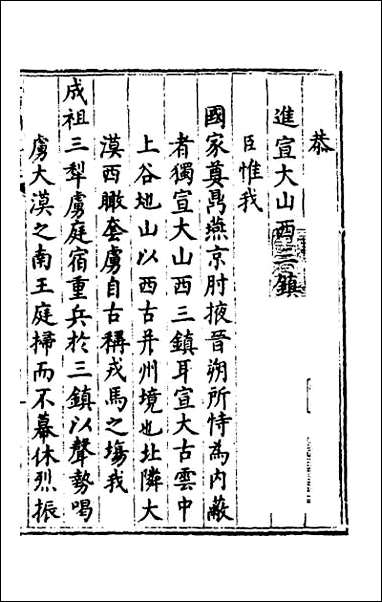 恭
進宣大山西三鎮
臣惟我
國家奠鼎燕京肘掖晉朔所恃為內蔽
者獨宣大山西三鎮耳宣大古雲中
上谷地山以西古并州境也北隣大
漠西瞰套虜自古稱戎馬之場我
成祖三犁虜庭宿重兵於三鎮以聲勢喝
虜大漠之南王庭掃而不幕休烈振